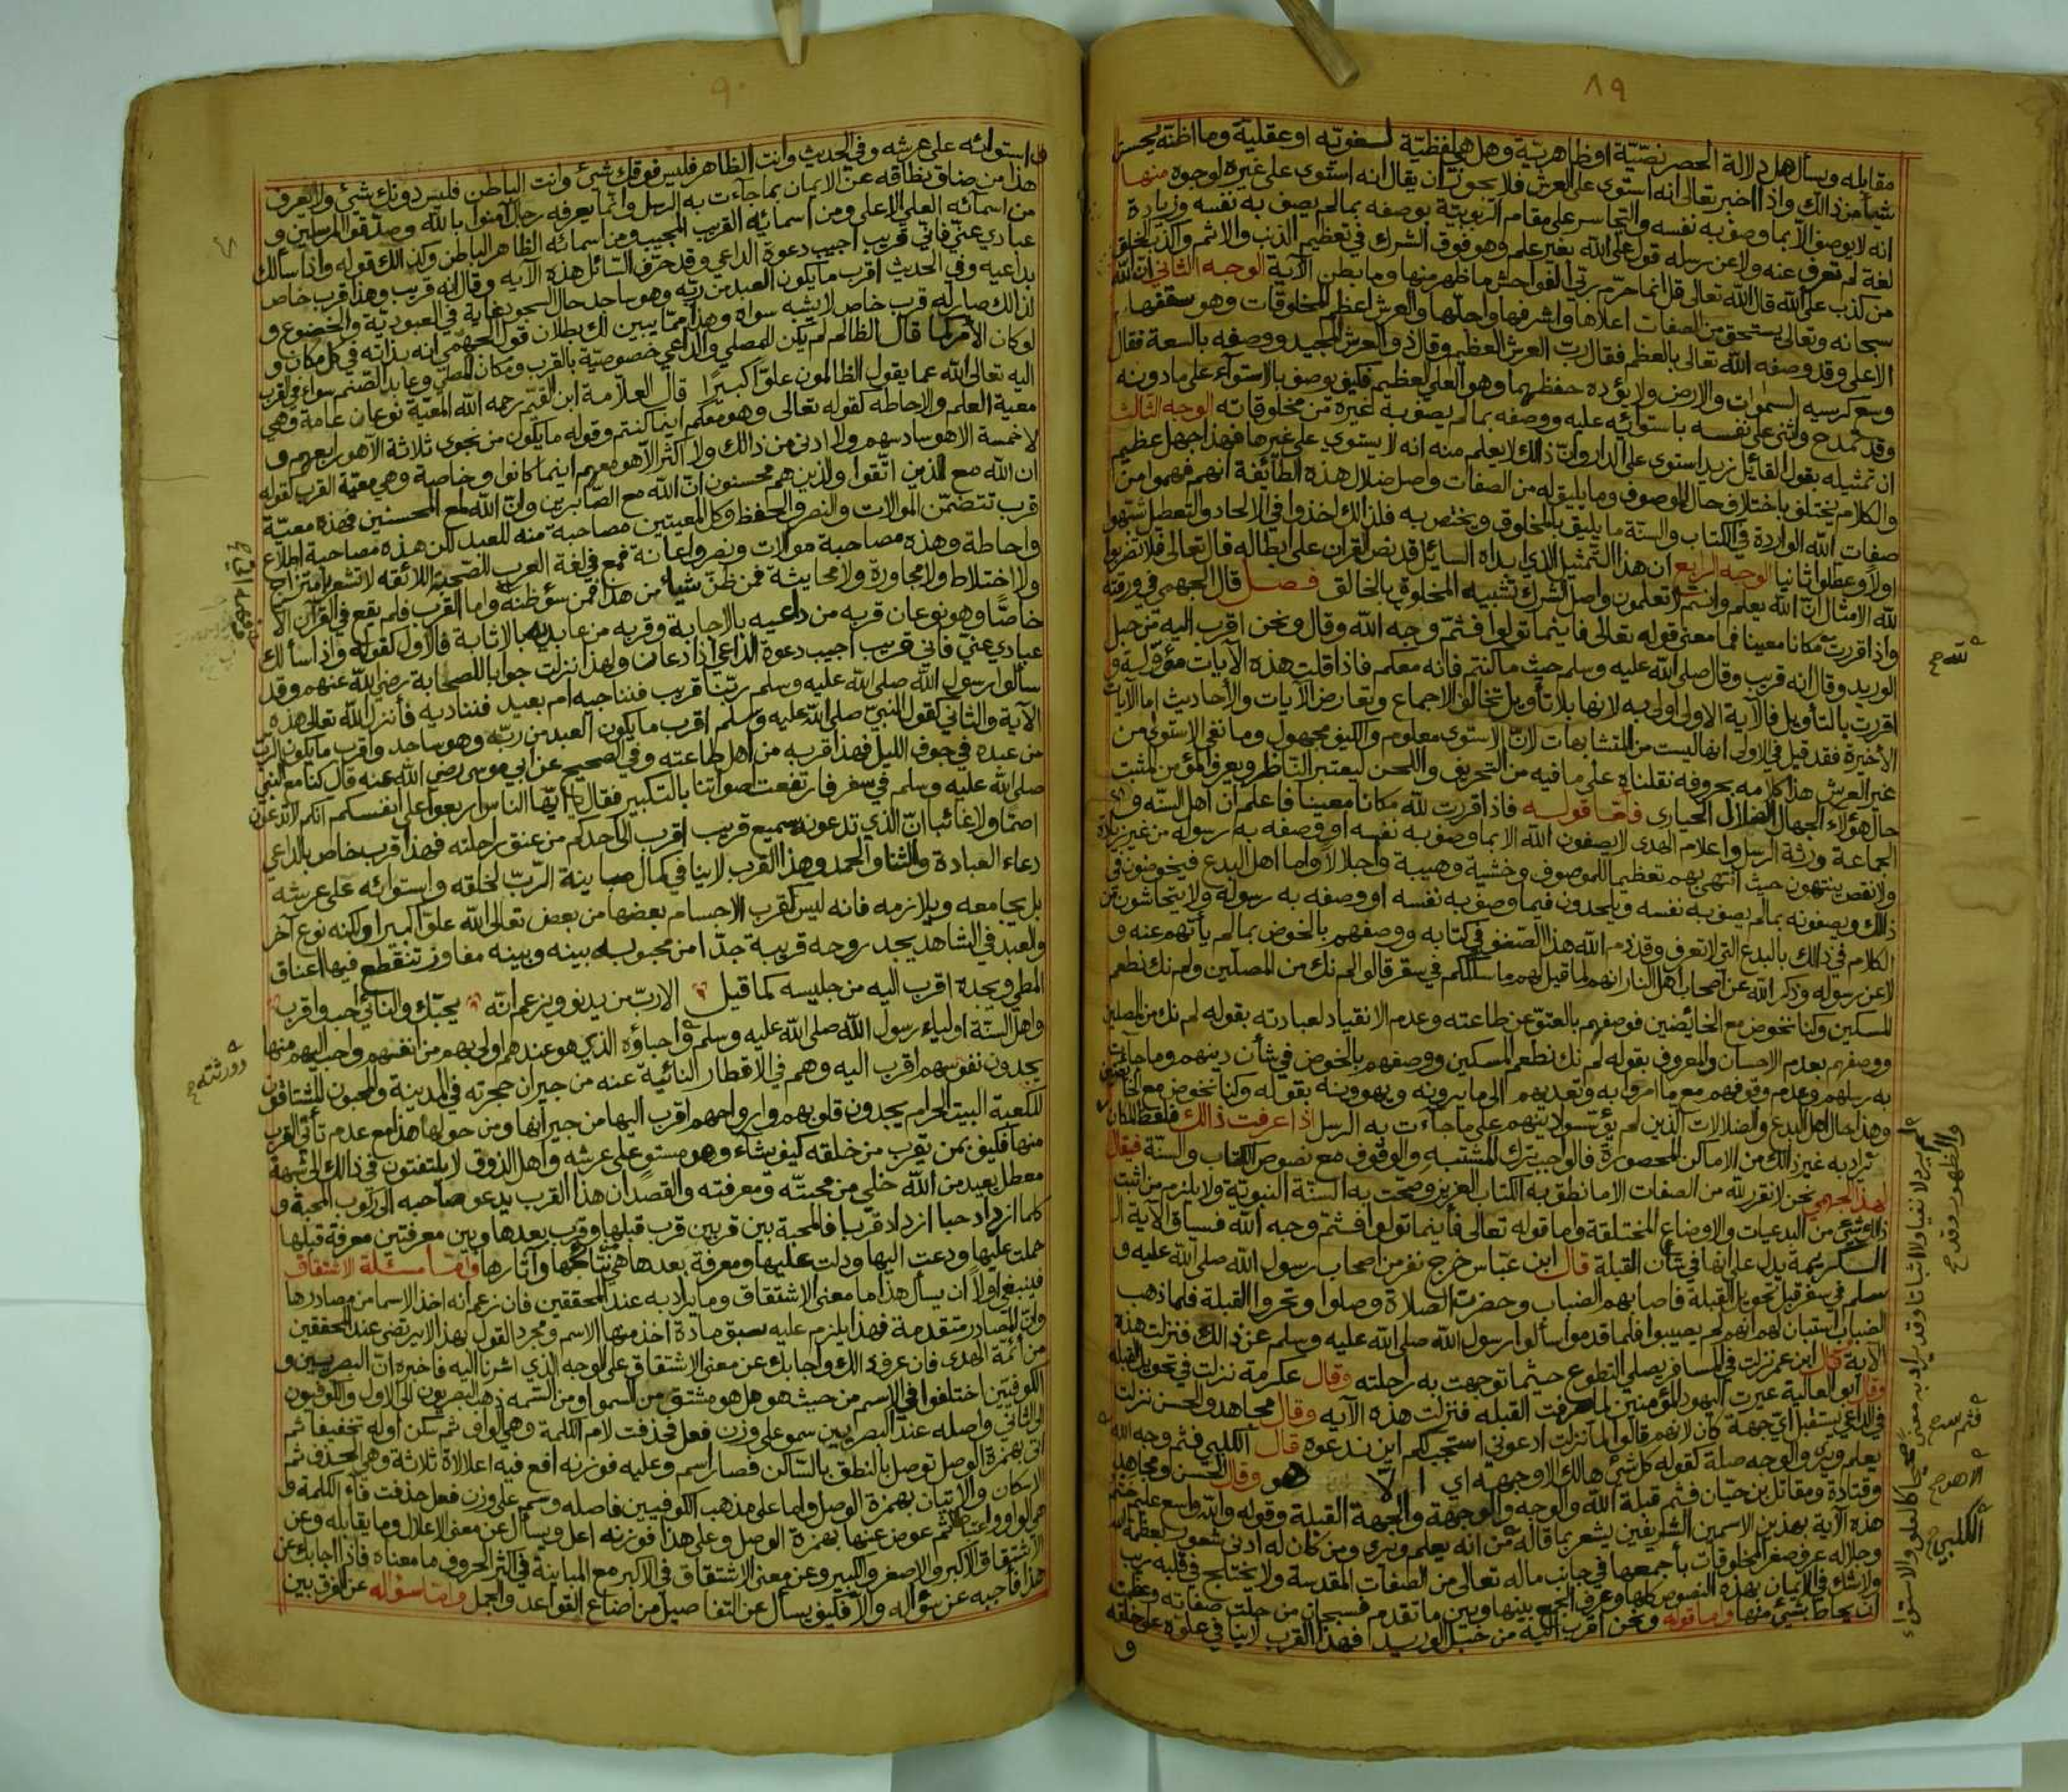 ٨٩
مقابله ويسأل هل دلالة الحصر نصّيّة او ظاهريّة وهل هي لفظيّة لسغويّه او عقليّة وما اظنّه يحسن
شيأ من ذالك واذا اخبر تعالى انه استوى على العرش فلا يجوز ان يقال انه استوى على غيره لوجوه منها
انه لا يوصف الا بما وصف به نفسه والتجاسر على مقام الربوبيّة بوصفه بما لم يصف به نفسه وزيادة
لغة لم تعرف عنه ولا عن رسله قول على الله بغير علم وهو فوق الشرك في تعظيم الذنب والاثم والكذب لخلق
من كذب على الله قال الله تعالى قل انما حرّم ربّي الفواحش ما ظهر منها وما بطن الآية الوجه الثاني ان الله
سبحانه وتعالى يستحق من الصفات اعلاها واشرفها واجلّها والعرش اعظم المخلوقات وهو سقفها
الاعلى وقد وصفه الله تعالى بالعظم فقال ربّ العرش العظيم وقال ذو العرش المجيد ووصفه بالسعة فقال
وسع كرسيه السموات والارض ولا يؤده حفظهما وهو العلي العظيم فكيف يوصف بالاستوآء على ما دونه
وقد تمدح واثنى على نفسه باستوائه عليه ووصفه بما لم يصف به غيره من مخلوقاته الوجه الثالث
ان تمثيله بقول القائل زيد استوى على الدار وانّ ذالك لا يعلم منه انه لا يستوي على غيرها فهذا جهل عظيم
والكلام يختلف باختلاف حال الموصوف وما يليق له من الصفات واصل ضلال هذه الطائفة انهم فهموا من
صفات الله الواردة في الكتاب والسنّة ما يليق بالمخلوق ويختص به فلذالك اخذوا في الالحاد والتعطيل شبّهوا
اولاً وعطلوا ثانيا الوجه الرابع ان هذا التّمثيل الذي ابداه السائل قد نصّ القرآن على ابطاله قال تعالى فلا تضربوا
لله الامثال انّ الله يعلم وانتم لا تعلمون واصل الشرك تشبيه المخلوق بالخالق فصل قال الجهمي في ورقته
واذا قررت مكانا معينا فما معنى قوله تعالى فاينما تولوا فثمّ وجه الله وقال ونحن اقرب اليه من حبل
الوريد وقال انه قريب وقال صلى الله عليه وسلم حيث ما كنتم فانه معكم فاذا قلت هذه الآيات مؤوّلة و
اقررت بالتأويل فالآية الاولى اولى به لانها بلا تأويل تخالف الاجماع وتعارض الآيات والأحاديث اما الآيات
الأخيرة فقد قيل في الاولى انها ليست من المتشابهات لانّ الاستوى معلوم والكيف مجهول وما نفى الاستوى من
غير العرش هذا كلامه بحروفه نقلناه على ما فيه من التحريف واللحن ليعتبر النّاظر ويعرف المؤمن المثبت
حال هؤلاء الجهال الضلال الحيارى فامّا قوله فاذا قررت لله مكانا معينا فاعلم ان اهل السنّه و
الجماعة ورثة الرسل واعلام الهدى لا يصفون الله الا بما وصف به نفسه او وصفه به رسوله من غير زيادة
ولا نقص ينتهون حيث انتهى بهم تعظيما للموصوف وخشية وهيبة واجلالاً واما اهل البدع فيخوضون في
ذالك ويصفونه بما لم يصف به نفسه ويلحدون فيما وصف به نفسه او وصفه به رسوله ولا يتحاشون من
الكلام في ذالك بالبدع التي لا تعرف وقد ذم الله هذا الصّنف في كتابه ووصفهم بالخوض بما لم يأتهم عنه و
لا عن رسوله وذكر الله عن اصحاب اهل النار انهم لما قيل لهم ما سلككم في سقر قالوا لم نك من المصلّين ولم نك نطعم
المسكين وكنا نخوض مع الخائضين فوصفهم بالعتوّ عن طاعته وعدم الانقياد لعبادته بقوله لم نك من المصلين
ووصفهم بعدم الاحسان والمعروف بقوله لم نك نطعم المسكين ووصفهم بالخوض في شأن دينهم وما جاءت
به رسلهم وعدم وقوفهم مع ما امروا به وتعديهم الى ما يرونه ويهوونه بقوله وكنا نخوض مع الخائضين
وهذا حال اهل البدع والضلالات الذين لم يؤسّسوا دينهم على ما جاءت به الرسل اذا عرفت ذالك فلفظ المكان
يراد به غير ذالك من الاماكن المحصورة فالواجب ترك المشتبه والوقوف مع نصوص الكتاب والسنّة فيقال
لهذا الجهمي نحن لا نقرر لله من الصفات الا ما نطق به الكتاب العزيز وصحّت به السنّة النبويّة ولا يلزم من اثبت
ذالك شيئ من البدعيات والاوضاع المختلقة واما قوله تعالى فأينما تولوا فثمّ وجه الله فسياق الآية ال
الكريمة يدل على انها في شأن القبلة قال ابن عبّاس خرج نفر من اصحاب رسول الله صلى الله عليه و
سلم في سفر قبل تحويل القبلة فاصابهم الضباب وحضرت الصلاة وصلوا وتحروا القبلة فلما ذهب
الضباب استبان لهم انهم لم يصيبوا فلما قدموا سألوا رسول الله صلى الله عليه وسلم عن ذالك فنزلت هذه
الآية قال ابن عمر نزلت في المسافر يصلي التطوع حيثما توجهت به راحلته وقال عكرمة نزلت في تحويل القبلة
وقال ابو العالية عيرت اليهود المؤمنين لما صرفت القبله فنزلت هذه الآيه وقال مجاهد والحسن نزلت
في الداعي يستقبل اي جهة كان لانهم قالوا لما نزلت ادعوني استجب لكم اين ندعوه قال الكلبي فثم وجه الله
يعلم ويرى والوجه صلة كقوله كل شئ هالك الا وجهه اي الا هو وقال الحسن ومجاهد
وقتادة ومقاتل بن حيّان فثم قبلة الله والوجه والوجهة والجهة القبلة وقوله والله واسع عليم ختم
هذه الآية بهذين الاسمين الشريفين يشعر بما قاله من انه يعلم ويرى ومن كان له ادنى شعور بعظمة الله
وجلاله عرف صغر المخلوقات بأجمعها في جانب ما له تعالى من الصفات المقدسة ولا يختلج في قلبه ريب
ولا شك في الايمان بهذه النصوص كلها وعرف الجمع بينها وبين ما تقدم فسبحان من جلت صفاته وعظمت
ان يحاط بشيئ منها واما قوله ونحن اقرب اليه من حبل الوريد فهذا القرب لا ينافي علوه على خلقه
و
لله صح
لم يرد لا نفيا ولا اثباتا وقد يراد به معنى صحيحا كالعلو والاستواء
والظهور وقد صح
فثم صح
الا هو صح
الكلبي صح
٩٠
واستوائه على عرشه وفي الحديث وانت الظاهر فليس فوقك شئ وانت الباطن فليس دونك شئ ولا يعرف
هذا من ضاق نطاقه عن الايمان بما جآءت به الرسل وانما يعرفه رجال آمنوا بالله وصدقوا المرسلين و
من اسمآئه العلي الاعلى ومن اسمائه القريب المجيب ومن اسمائه الظاهر الباطن وكذالك قوله واذا سألك
عبادي عني فاني قريب اجيب دعوة الداعي وقد حرّف السّائل هذه الآيه وقال انه قريب وهذا قرب خاص
بداعيه وفي الحديث اقرب ما يكون العبد من ربّه وهو ساجد حال السجود غاية في العبوديّة والخضوع و
لذالك صار له قرب خاص لا يشبه سواه وهذا ممّا يبين لك بطلان قول الجهمي انه بذاته في كل مكان و
لو كان الأمر كما قال الظالم لم يكن للمصلي والداعي خصوصيّة بالقرب ومكان المصلي وعابد الصّنم سواء في القرب
اليه تعالى الله عما يقول الظالمون علوّا كبيرًا قال العلاّمة ابن القيّم رحمه الله المعيّة نوعان عامة وهي
معيّة العلم والاحاطه كقوله تعالى وهو معكم اينما كنتم وقوله ما يكون من نجوى ثلاثة الا هو رابعهم و
لا خمسة الا هو سادسهم ولا ادنى من ذالك ولا اكثر الا هو معهم اينما كانوا وخاصة وهي معيّة القرب كقوله
ان الله مع الذين اتّقوا والذين هم محسنون انّ الله مع الصّابرين وانّ الله لمع المحسنين فهذه معيّة
قرب تتضمّن الموالات والنصر والحفظ وكل المعيتين مصاحبة منه للعبد لكن هذه مصاحبة اطلاع
واحاطة وهذه مصاحبة موالات ونصر واعانة فمع في لغة العرب للصّحبة اللائقه لا تشعر بامتزاج
ولا اختلاط ولا مجاورة ولا محايثة فمن ظنّ شيأ من هذا فمن سؤ ظنّه واما القرب فلم يقع في القرآن الا
خاصّا وهو نوعان قربه من داعيه بالاجابة وقربه من عابديه بالاثابة فالاول كقوله واذا سألك
عبادي عنّي فاني قريب اجيب دعوة الداعي اذا دعان ولهذا نزلت جوابا للصحابة رضي الله عنهم وقد
سألوا رسول الله صلى الله عليه وسلم ربّنا قريب فنناجيه ام بعيد فنناديه فأنزل الله تعالى هذه
الآية والثاني كقول النبيّ صلى الله عليه وسلم اقرب ما يكون العبد من ربّه وهو ساجد واقرب ما يكون الربّ
من عبده في جوف الليل فهذا قربه من اهل طاعته وفي الصحيح عن ابي موسى رضي الله عنه قال كنا مع النبي
صلى الله عليه وسلم في سفر فارتفعت اصواتنا بالتكبير فقال يا ايّها الناس اربعوا على انفسكم انكم لا تدعون
اصمّا ولا غائبا انّ الذي تدعونه سميع قريب اقرب الى احدكم من عنق راحلته فهذا قرب خاص بالداعي
دعاء العبادة والثنا والحمد وهذا القرب لا ينافي كمال مباينة الربّ لخلقه واستوائه على عرشه
بل يجامعه ويلازمه فانه ليس كقرب الاجسام بعضها من بعض تعالى الله علوّا كبيرا ولكنه نوع آخر
والعبد في الشاهد يجد روحه قريبة جدّا من محبوب له بينه وبينه مفاوز تنقطع فيها اعناق
المطي ويجده اقرب اليه من جليسه كما قيل الا ربّ من يدنو ويزعم انّه يحبّك والنائي احب واقرب
واهل السنّة اولياء رسول الله صلى الله عليه وسلم واحباؤه الذي هو عندهم اولى بهم من انفسهم واحب اليهم منها
يجدون نفوسهم اقرب اليه وهم في الاقطار النائية عنه من جيران حجرته في المدينة والمحبون المشتاقون
للكعبة البيت الحرام يجدون قلوبهم وارواحهم اقرب اليها من جيرانها ومن حولها هذا مع عدم تأتّي القرب
منها فكيف بمن يقرب من خلقه كيف يشاء وهو مستو على عرشه واهل الذوق لا يلتفتون في ذالك الى شبهة
معطل بعيد من الله خلي من محبته ومعرفته والقصد ان هذا القرب يدعو صاحبه الى ركوب المحبة و
كلما ازداد حبا ازداد قربا فالمحبة بين قربين قرب قبلها وقرب بعدها وبين معرفتين معرفة قبلها
حملت عليها ودعت اليها ودلت عليها ومعرفة بعدها هي نتائجها وآثارها وامّا مسئلة الاشتقاق
فينبغي اولاً ان يسأل هذا ما معنى الاشتقاق وما يراد به عند المحققين فان زعم انه اخذ الاسما من مصادرها
وانّ المصادر متقدمة فهذا يلزم عليه سبق مادة اخذ منها الاسم ومجرد القول بهذا لا يرتضى عند المحققين
من أئمة الهدى فان عرف ذالك واجابك عن معنى الاشتقاق على الوجه الذي اشرنا اليه فاخبره انّ البصريين و
الكوفيين اختلفوا في الاسم من حيث هو هل هو مشتق من السمو او من السّمه ذهب البصريون الى الاول والكوفيون
الى الثاني واصله عند البصريين سمو على وزن فعل فحذفت لام الكلمة وهي الواو ثم سكن اوله تخفيفا ثم
اتى بهمزة الوصل توصل بالنطق بالسّاكن فصار اسم وعليه فوزنه افع ففيه اعلالاة ثلاثة وهي الحذف ثم
الاسكان والاتيان بهمزة الوصل واما على مذهب الكوفيين فاصله وسم على وزن فعل حذفت فآء الكلمة و
هي الواو اعتباطا ثم عوض عنها بهمزة الوصل وعلى هذا فوزنه اعل ويسأل عن معنى الاعلال وما يقابله وعن
الاشتقاق الاكبر والاصغر والكبير وعن معنى الاشتقاق في الاكبر مع المباينة في اكثر الحروف ما معناه فاذا اجابك عن
هذا فأجبه عن سؤاله والا فكيف يسأل عن التفاصيل من اضاع القواعد والجمل وامّا سؤاله عن الفرق بين
وورثته صح